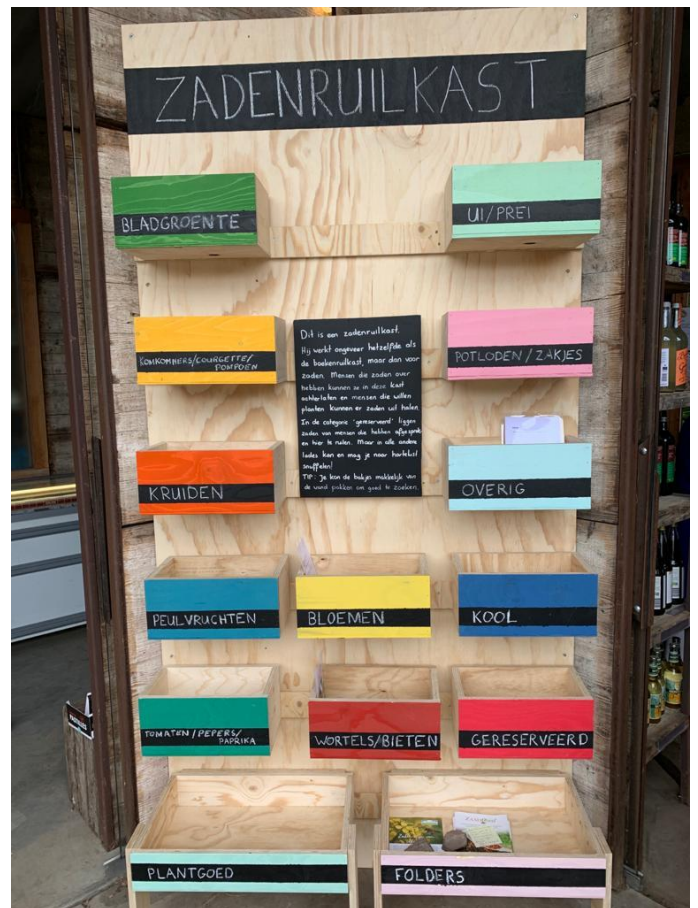 ZADENRUILKAST
BLADGROENTE
UI/PREI
KOMKOMMERS/COURGETTE/
POMPOEN
POTLODEN/ZAKJES
Dit is een zadenruilkast.
Hij werkt ongeveer hetzelfde als
de boekenruilkast, maar dan voor
zaden. Mensen die zaden over
hebben kunnen ze in deze kast
achterlaten en mensen die willen
planten kunnen er zaden uit halen.
In de categorie 'gereserveerd' liggen
zaden van mensen die hebben afgesproken
om hier te ruilen. Maar in alle andere
lades kan en mag je naar hartelust
snuffelen!
TIP: Je kan de bakjes makkelijk van
de wand pakken om goed te zoeken.
KRUIDEN
OVERIG
PEULVRUCHTEN
BLOEMEN
KOOL
TOMATEN/PEPERS/
PAPRIKA
WORTELS/BIETEN
GERESERVEERD
PLANTGOED
FOLDERS